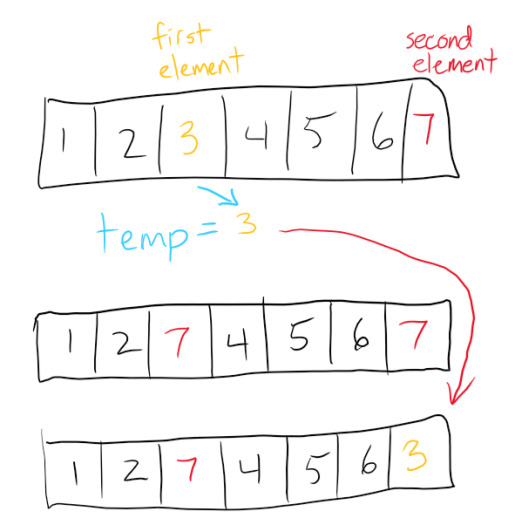 first
element
second
element
1 2 3 4 5 6 7
temp = 3
1 2 7 4 5 6 7
1 2 7 4 5 6 3